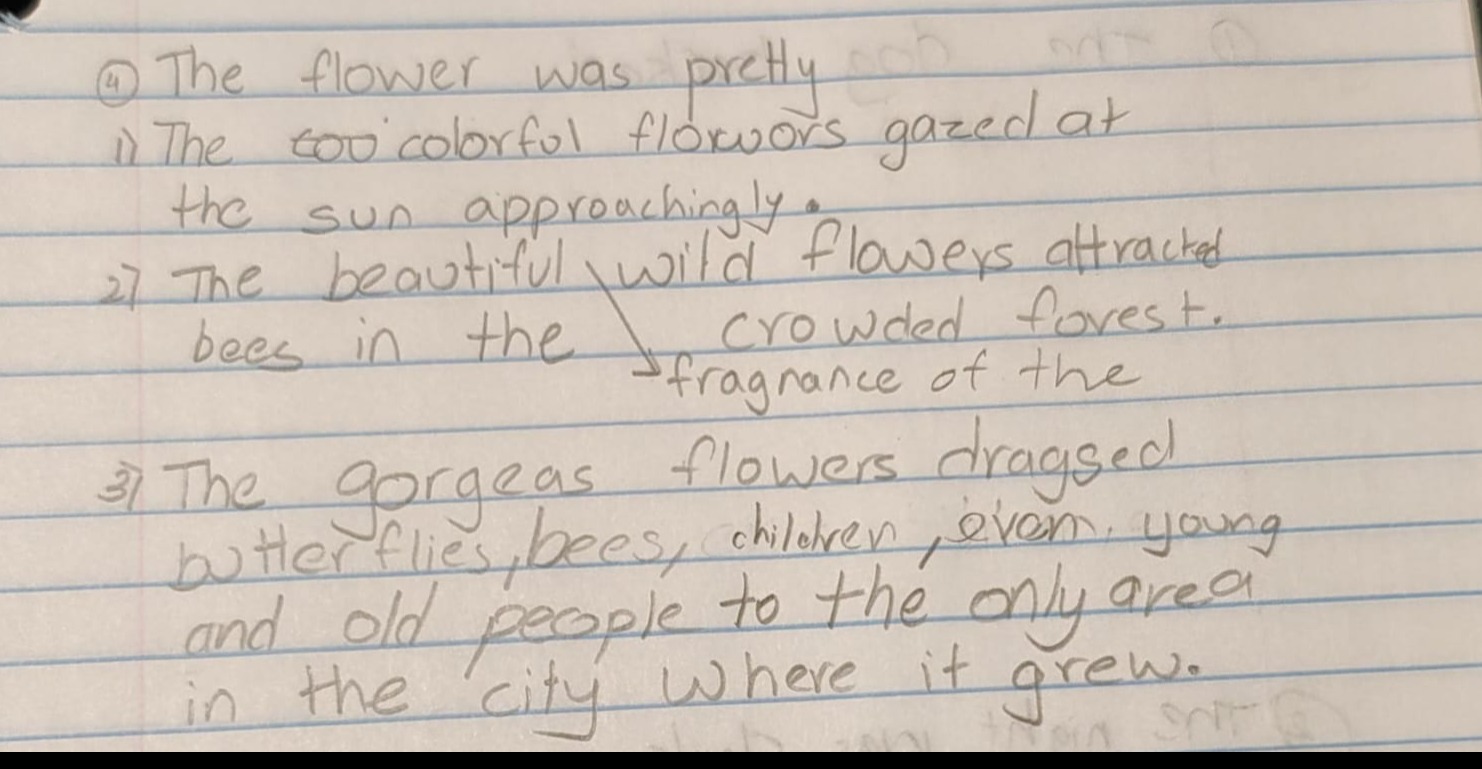 ④ The flower was pretty
1) The too colorful flowors gazed at
the sun approachingly.
2) The beautiful wild flowers attracted
bees in the crowded forest.
fragnance of the
3) The gorgeas flowers dragged
butterflies, bees, children, even, young
and old people to the only area
in the city where it grew.